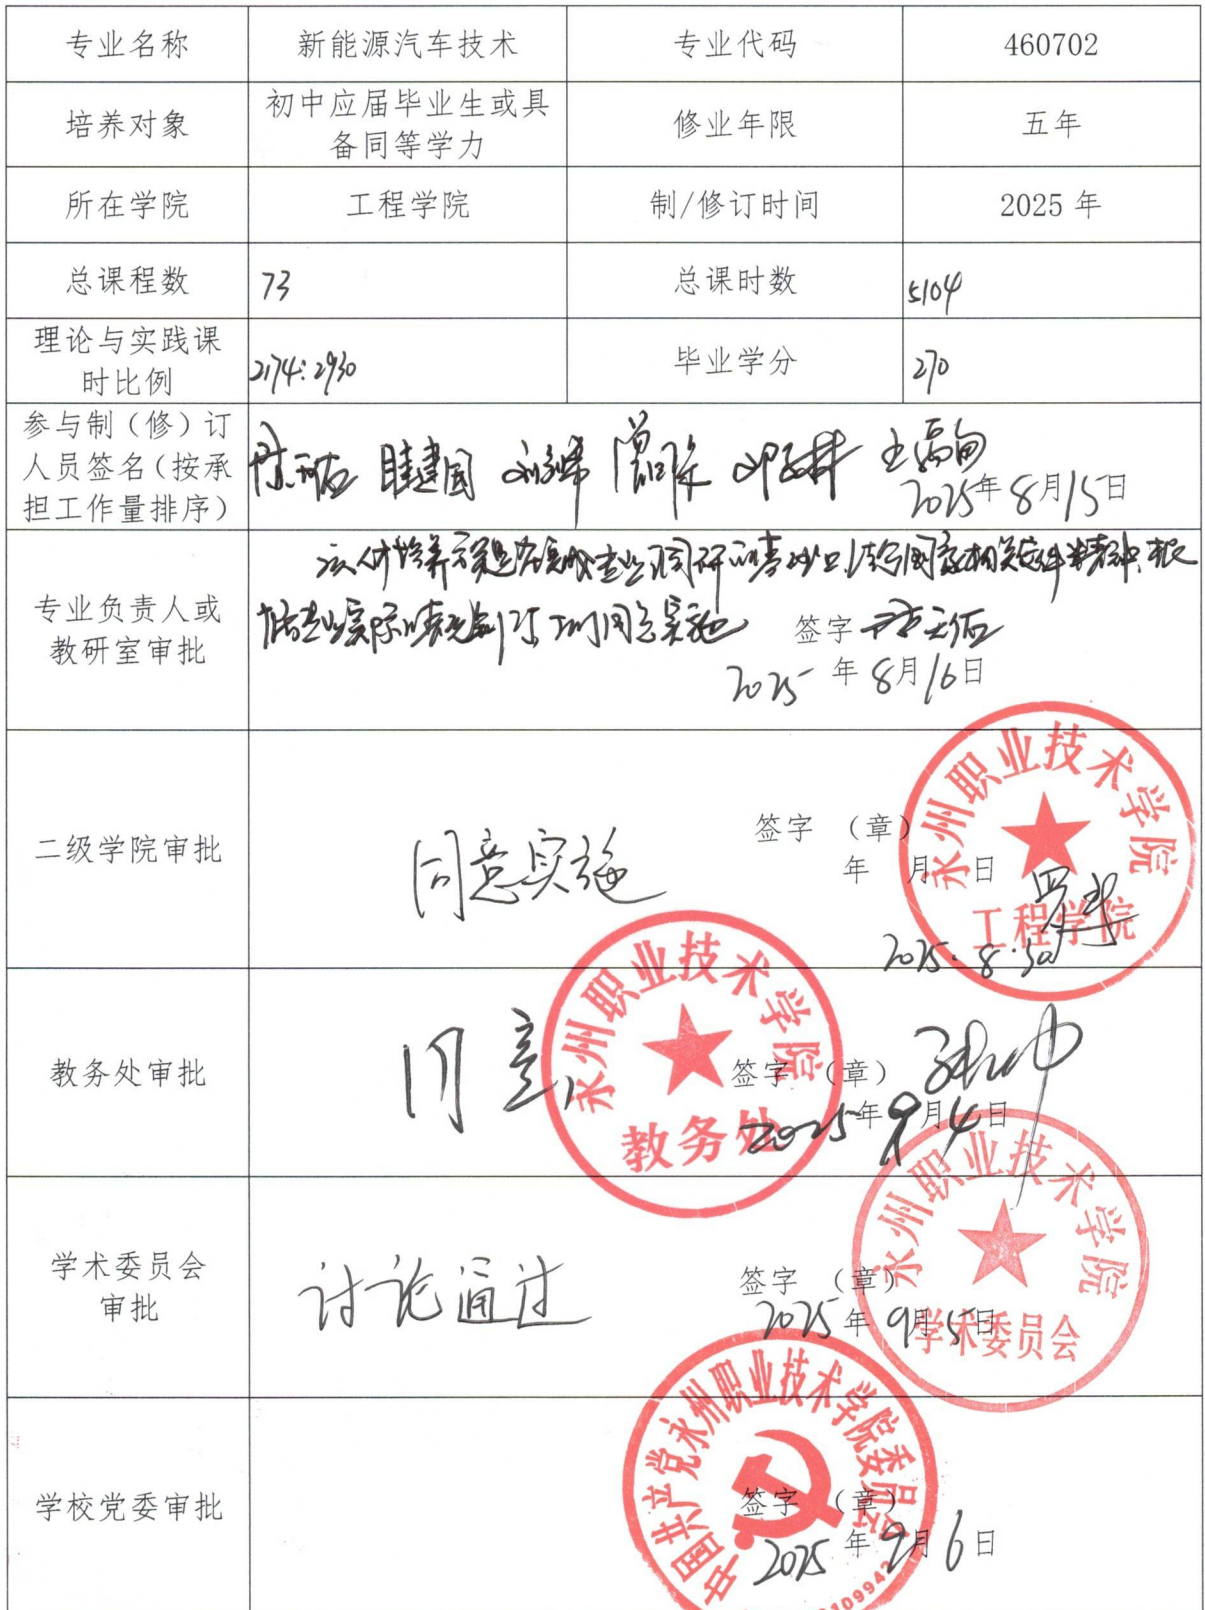 专业名称 新能源汽车技术 专业代码 460702
培养对象 初中应届毕业生或具
备同等学力 修业年限 五年
所在学院 工程学院 制/修订时间 2025 年
总课程数 73 总课时数 5104
理论与实践课
时比例 2174:2930 毕业学分 270
参与制（修）订
人员签名（按承
担工作量排序）
2025年8月15日
专业负责人或
教研室审批
签字
2025年8月16日
二级学院审批
同意实施
签字 （章）
年 月 日
2025.8.30
永州职业技术学院
工程学院
教务处审批
同意
签字 （章）
2025年9月4日
永州职业技术学院
教务处
学术委员会
审批
讨论通过
签字 （章）
2025年9月5日
永州职业技术学院
学术委员会
学校党委审批
签字 （章）
2025年9月6日
中国共产党永州职业技术学院委员会